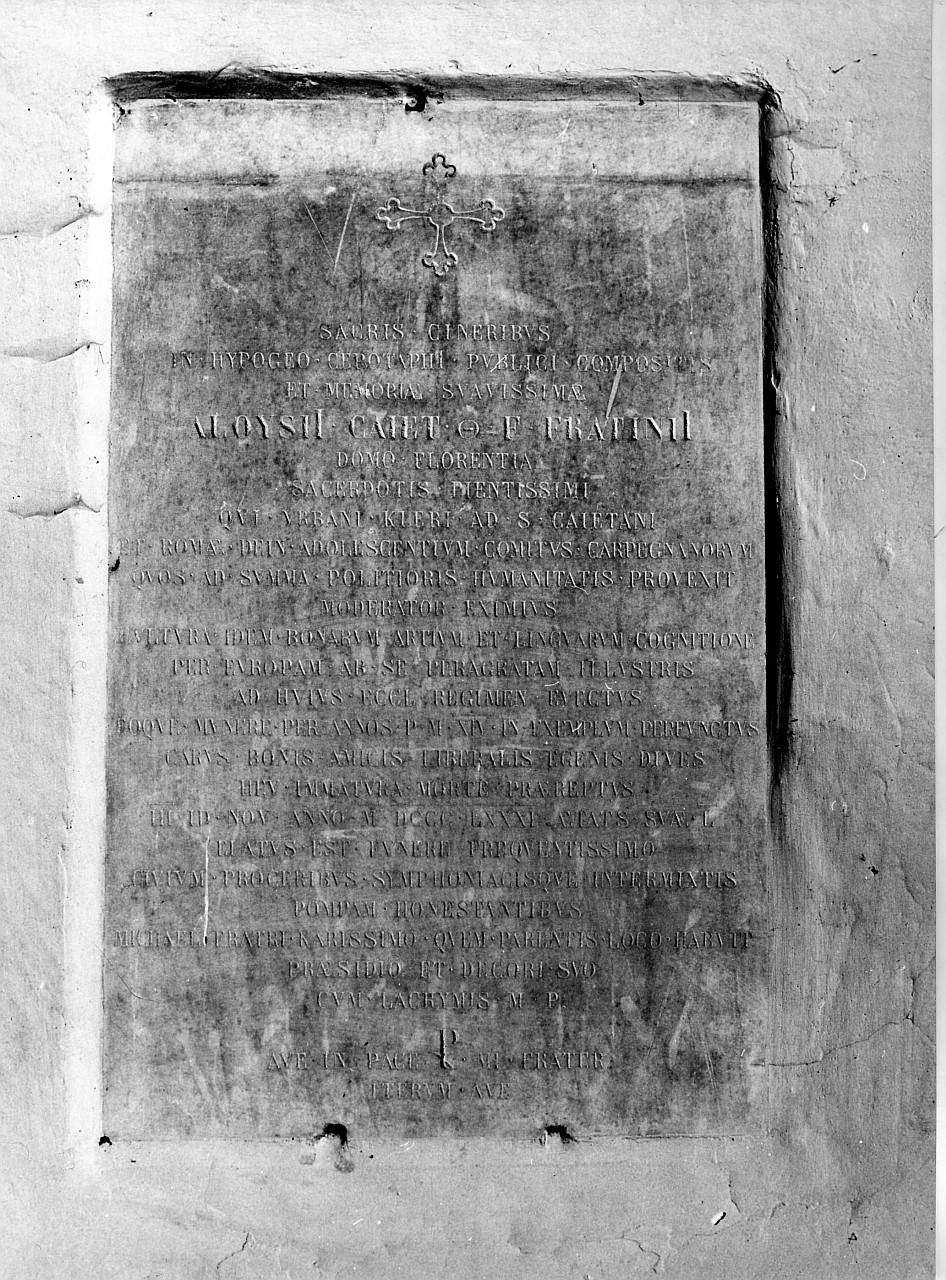 SACRIS · CINERIBVS
IN · HYPOGEO · CEPOTAPHI · PVBLICI · COMPOSITIS
ET · MEMORIÆ · SVAVISSIMÆ
ALOYSII · CAIET · Θ · F · FRATINII
DOMO · FLORENTIA
SACERDOTIS · PIENTISSIMI
QVI · VRBANI · KLERI · AD · S · CAIETANI
ET · ROMÆ · DEIN · ADOLESCENTIVM · COMITVS · CARPEGNANORVM
QVOS · AD · SVMMA · POLITIORIS · HVMANITATIS · PROVEXIT
MODERATOR · EXIMIVS
CVLTVRA · IDEM · BONARVM · ARTIVM · ET · LINGVARVM · COGNITIONE
PER · EVROPAM · AB · SE · PERAGRATAM · ILLVSTRIS
AD · HVIVS · ECCL · REGIMEN · EVECTVS
EOQVE · MVNERE · PER · ANNOS · P · M · XIV · IN · EXEMPLVM · PERFVNCTVS
CARVS · BONIS · AMICIS · LIBERALIS · EGENIS · DIVES
HEV · IMMATVRA · MORTE · PRÆREPTVS
III · ID · NOV · ANNO · M · DCCC · LXXXI · ÆTATS · SVÆ · L
ELATVS · EST · FVNERE · FREQVENTISSIMO
CIVIVM · PROCERIBVS · SYMPHONIACISQVE · INTERMIXTIS
POMPAM · HONESTANTIBVS
MICHAEL · FRATRI · KARISSIMO · QVEM · PARENTIS · LOCO · HABVIT
PRÆSIDIO · ET · DECORI · SVO
CVM · LACRYMIS · M · P
AVE · IN · PACE · MI · FRATER
ITERVM · AVE